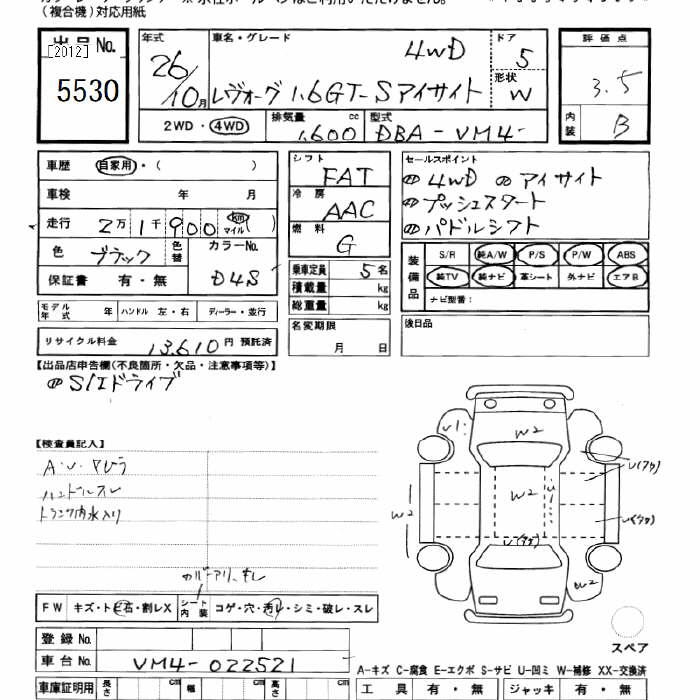 (複合機)対応用紙
出品No.
[2012]
5530
年式 車名・グレード ドア 評価点
26/10月
4WD 5
レヴォーグ 1.6GT-Sアイサイト
形状 W
3.5
内装 B
2WD・4WD 排気量 1,600 cc 型式 DBA-VM4
車歴 自家用・( )
車検 年 月
走行 2万1千900 km マイル( )
色 ブラック 色替 カラーNo.
D4S
保証書 有・無
モデル年式 年 ハンドル 左・右 ディーラー・並行
リサイクル料金 13,610円 預託済
シフト FAT
冷房 AAC
燃料 G
乗車定員 5名
積載量 kg
総重量 kg
名変期限
月 日
セールスポイント
4WD アイサイト
プッシュスタート
パドルシフト
装備品 S/R 純A/W P/S P/W ABS
純TV 純ナビ 革シート 外ナビ エアB
ナビ型番:
後日品
【出品店申告欄(不良箇所・欠品・注意事項等)】
S/Iドライブ
【検査員記入】
A・U・ヤビラ
ハンドルスレ
トランク内水入り
FW キズ・トビ石・割レX シート内装 コゲ・穴・汚レ・シミ・破レ・スレ
登録No.
車台No. VM4-022521
車庫証明用 長さ cm 幅 cm 高さ cm
U1 W2 U(アウ) W2 W2 U U(アウ) U(アウ) W2
スペア
A-キズ C-腐食 E-エクボ S-サビ U-凹ミ W-補修 XX-交換済
工具 有・無 ジャッキ 有・無